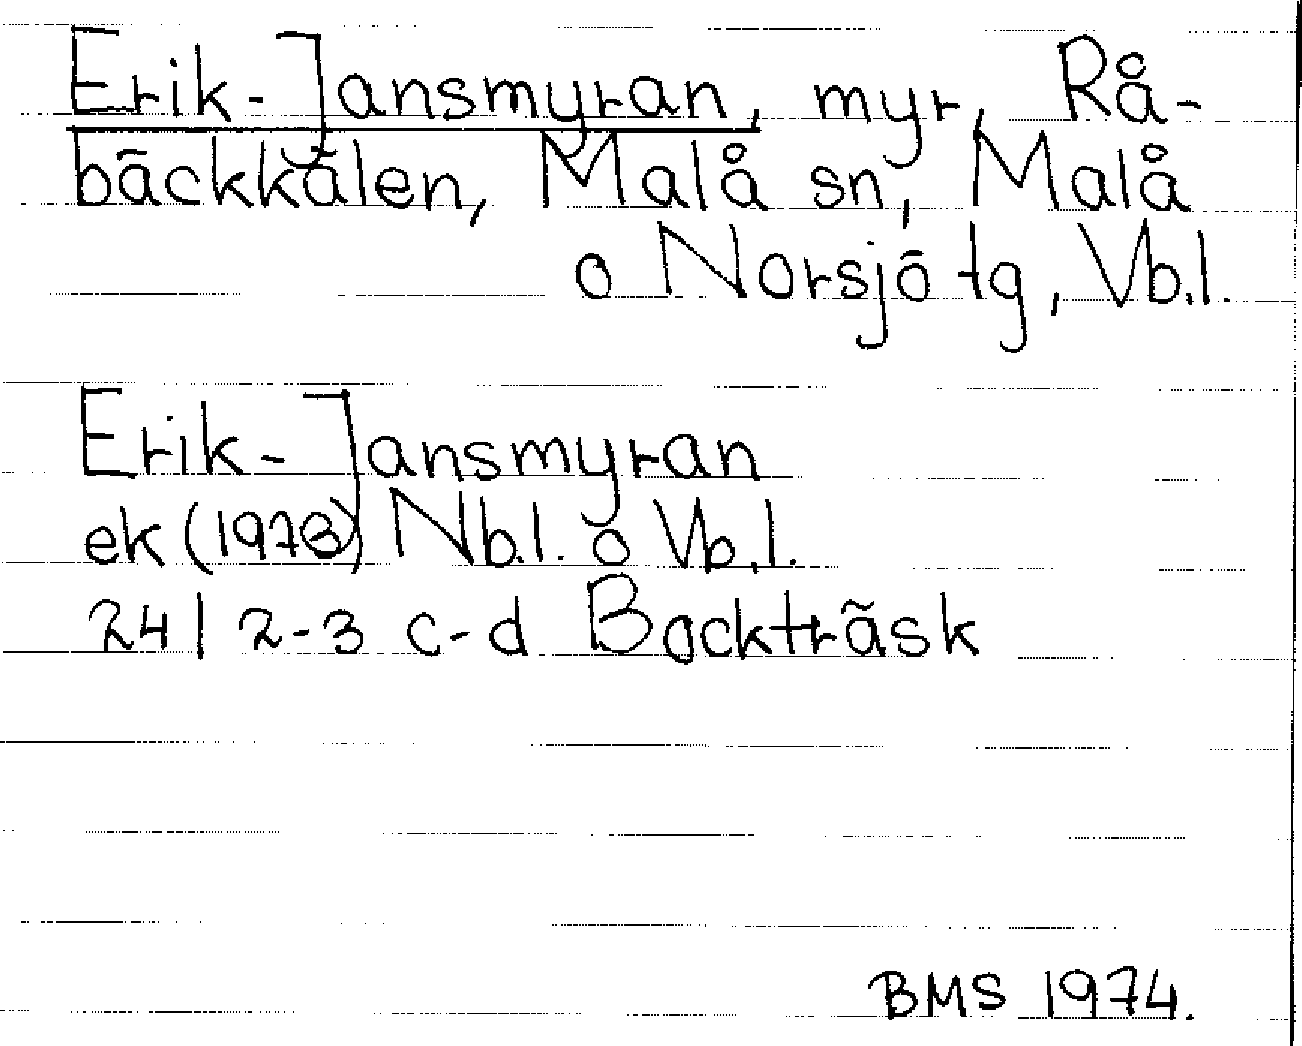 Erik-Jansmyran, myr, Rå-
bäckkälen, Malå sn, Malå
o Norsjö tg, Vb.l.
Erik-Jansmyran
ek (1973) Nb.l. o Vb.l.
24 I 2-3 c-d Bockträsk
BMS 1974.